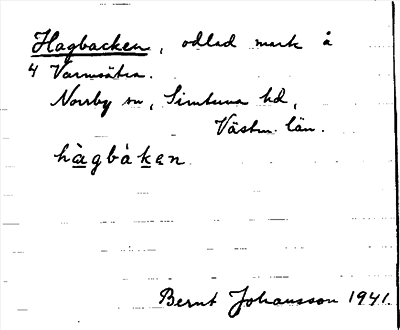 Hagbacken, odlad mark å
4 Varmsätra.
Norrby sn, Simtuna hd,
Västm. län.
hàgbàken
Bernt Johansson 1941.